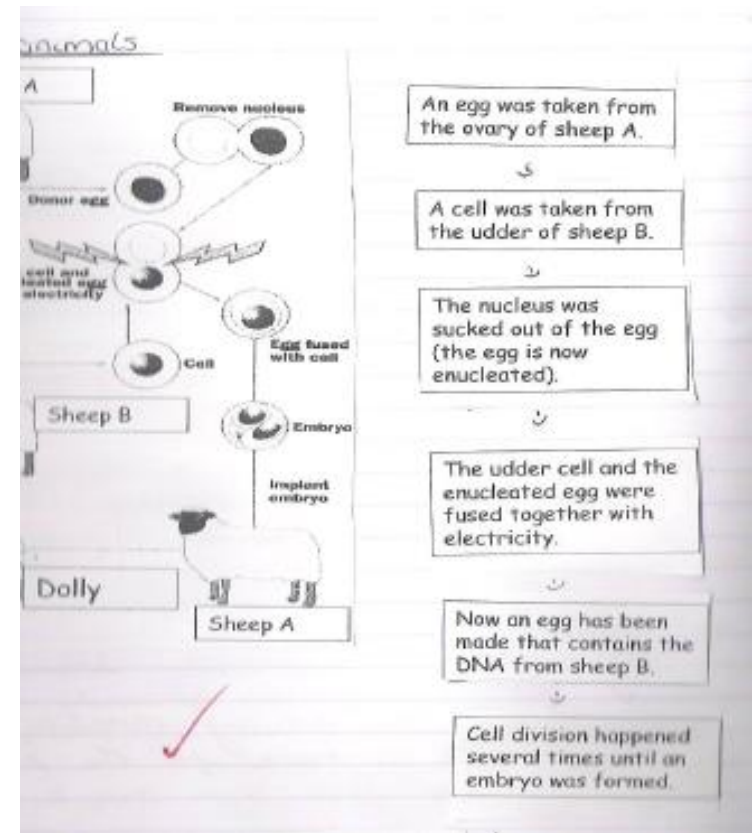 animals
A
Remove nucleus
Donor egg
cell and
electricity
Cell
Egg fused
with cell
Sheep B
Embryo
Implant
embryo
Dolly
Sheep A
An egg was taken from
the ovary of sheep A.
A cell was taken from
the udder of sheep B.
The nucleus was
sucked out of the egg
(the egg is now
enucleated).
The udder cell and the
enucleated egg were
fused together with
electricity.
Now an egg has been
made that contains the
DNA from sheep B.
Cell division happened
several times until an
embryo was formed.